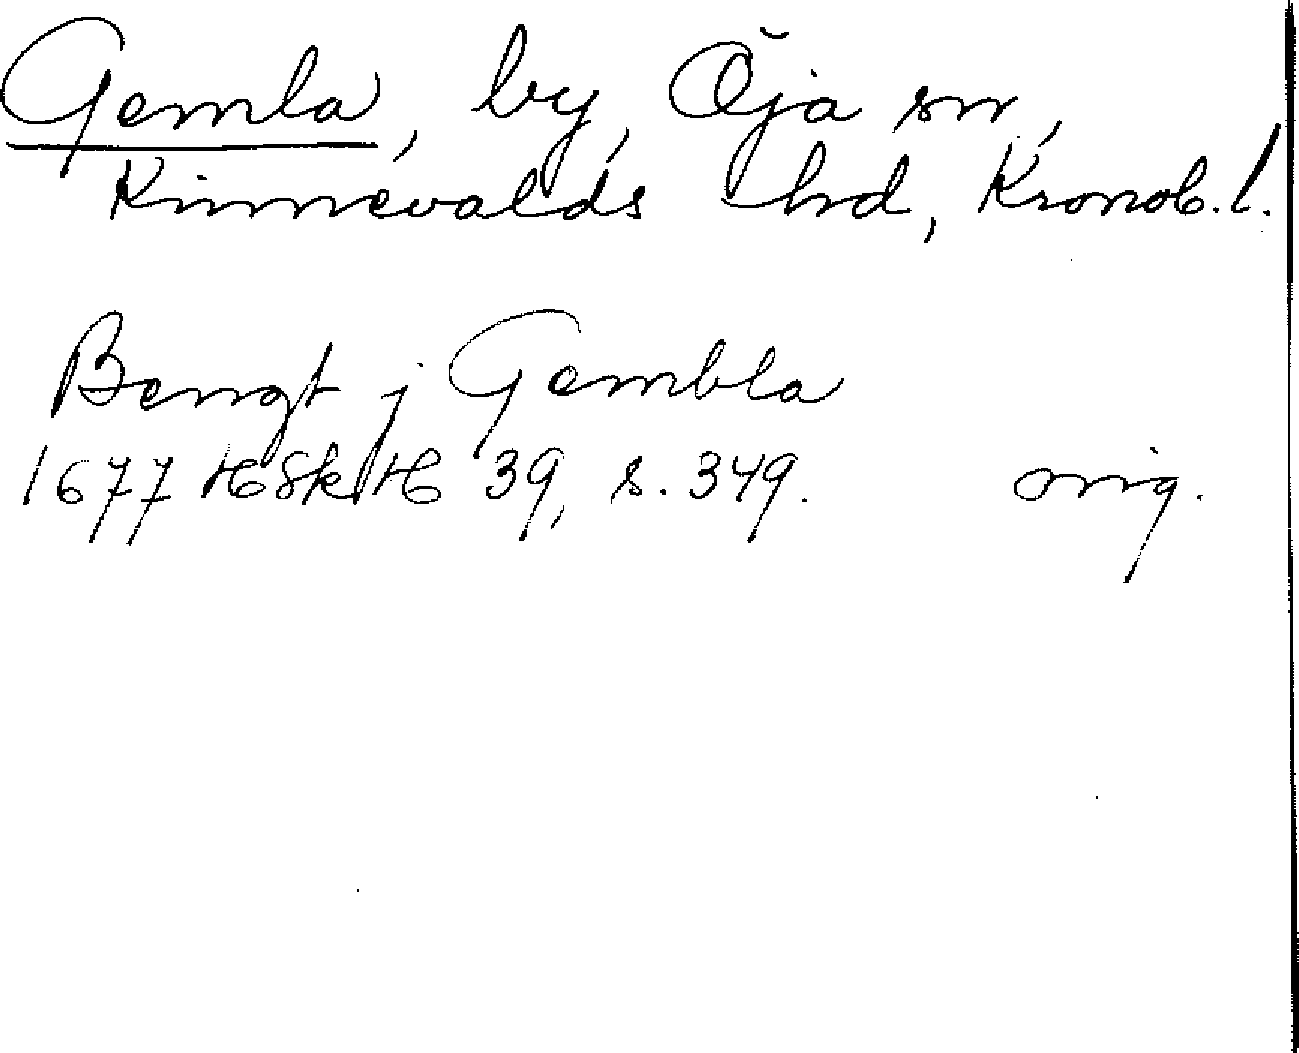 Gemla, by, Öja sn,
Kinnevalds hd, Kronob. l.
Bengt j Gembla
1677 HSkH 39, s. 349. orig.